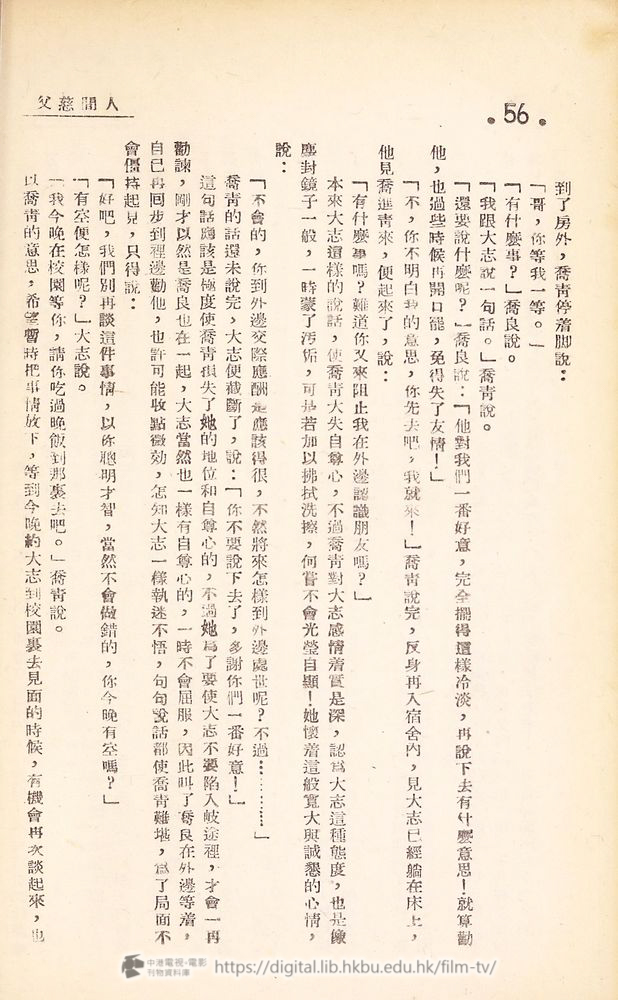 父慈間人
•56•
到了房外，喬靑停着脚說：
「哥，你等我一等。」
「有什麽事？」喬良說。
「我跟大志說一句話。」喬靑說。
「還要說什麽呢？」喬良說：「他對我們一番好意，完全擺得這樣冷淡，再說下去有什麽意思！就算勸
他，也過些時候再開口罷，免得失了友情！」
「不，你不明白我的意思，你先去吧，我就來！」喬靑說完，反身再入宿舍內，見大志已經躺在床上，
他見喬進靑來，便起來了，說：
「有什麽事嗎？難道你又來阻止我在外邊認識朋友嗎？」
本來大志這樣的說話，使喬靑大失自尊心，不過喬靑對大志感情着實是深，認爲大志這種態度，也是像
塵封鏡子一般，一時蒙了污垢，可是若加以拂拭洗擦，何嘗不會光瑩自顯！她懷着這般寬大與誠懇的心情，
說：
「不會的，你到外邊交際應酬是應該得很，不然將來怎樣到外邊處世呢？不過…………」
喬靑的話還未說完，大志便截斷了，說：「你不要說下去了，多謝你們一番好意！」
這句話應該是極度使喬靑損失了她的地位和自尊心的，不過她爲了要使大志不要陷入岐途裡，才會一再
勸諫，剛才以然是喬良也在一起，大志當然也一樣有自尊心的，一時不會屈服，因此叫了喬良在外邊等着，
自己再回步到裡邊勸他，也許可能收點微効，怎知大志一樣執迷不悟，句句說話都使喬靑難堪，爲了局面不
會僵持起見，只得說：
「好吧，我們別再談這件事情，以你聰明才智，當然不會做錯的，你今晚有空嗎？」
「有空便怎樣呢？」大志說。
「我今晚在校園等你，請你吃過晚飯到那裏去吧。」喬靑說。
以喬靑的意思，希望暫時把事情放下，等到今晚約大志到校園裏去見面的時候，有機會再次談起來，也
中港電視·電影
刊物資料庫
https://digital.lib.hkbu.edu.hk/film-tv/